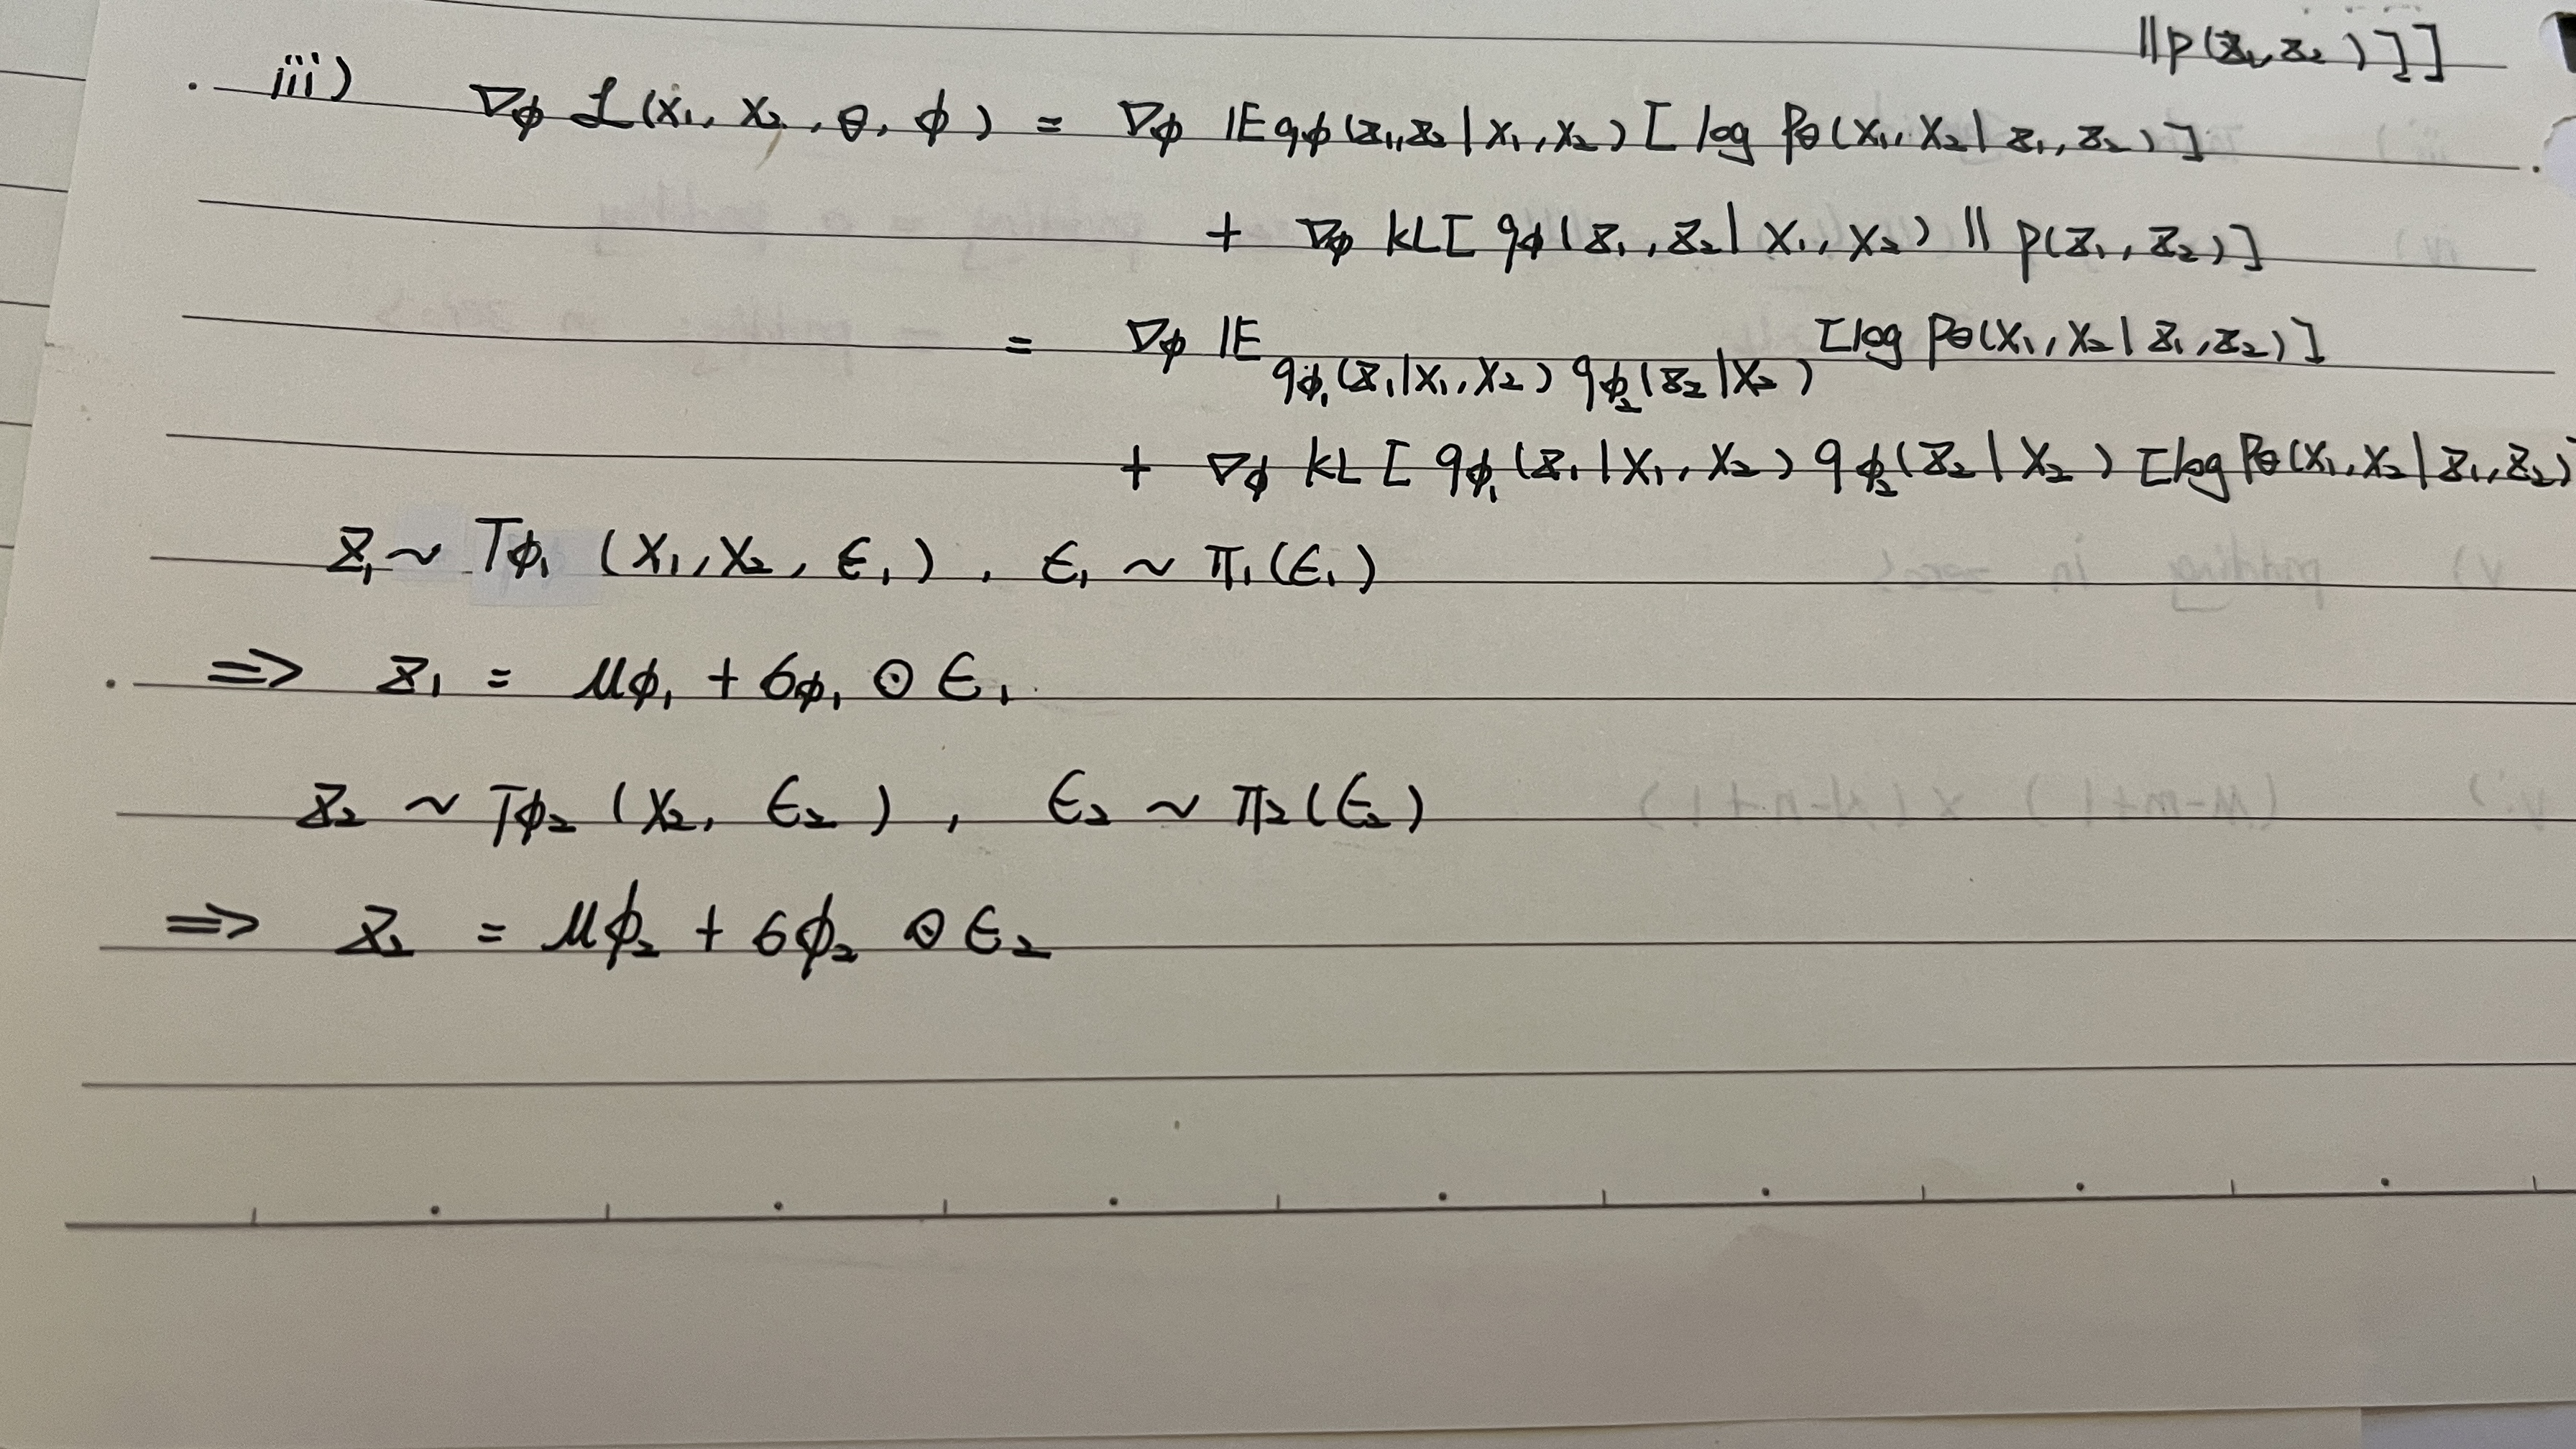 || p(z₁,z₂)]]
iii) ∇φ ℒ(x₁, x₂, θ, φ) = ∇φ 𝔼qφ(z₁,z₂|x₁,x₂)[log pθ(x₁,x₂|z₁,z₂)]
+ ∇φ KL[qφ(z₁,z₂|x₁,x₂) || p(z₁,z₂)]
= ∇φ 𝔼 qφ₁(z₁|x₁,x₂) qφ₂(z₂|x₂) [log pθ(x₁,x₂|z₁,z₂)]
+ ∇φ KL[qφ₁(z₁|x₁,x₂) qφ₂(z₂|x₂) [log pθ(x₁,x₂|z₁,z₂)
z₁ ~ Tφ₁ (x₁,x₂, ϵ₁), ϵ₁ ~ π₁(ϵ₁)
⇒ z₁ = μφ₁ + σφ₁ ⊙ ϵ₁
z₂ ~ Tφ₂ (x₂, ϵ₂), ϵ₂ ~ π₂(ϵ₂)
⇒ z₂ = μφ₂ + σφ₂ ⊙ ϵ₂